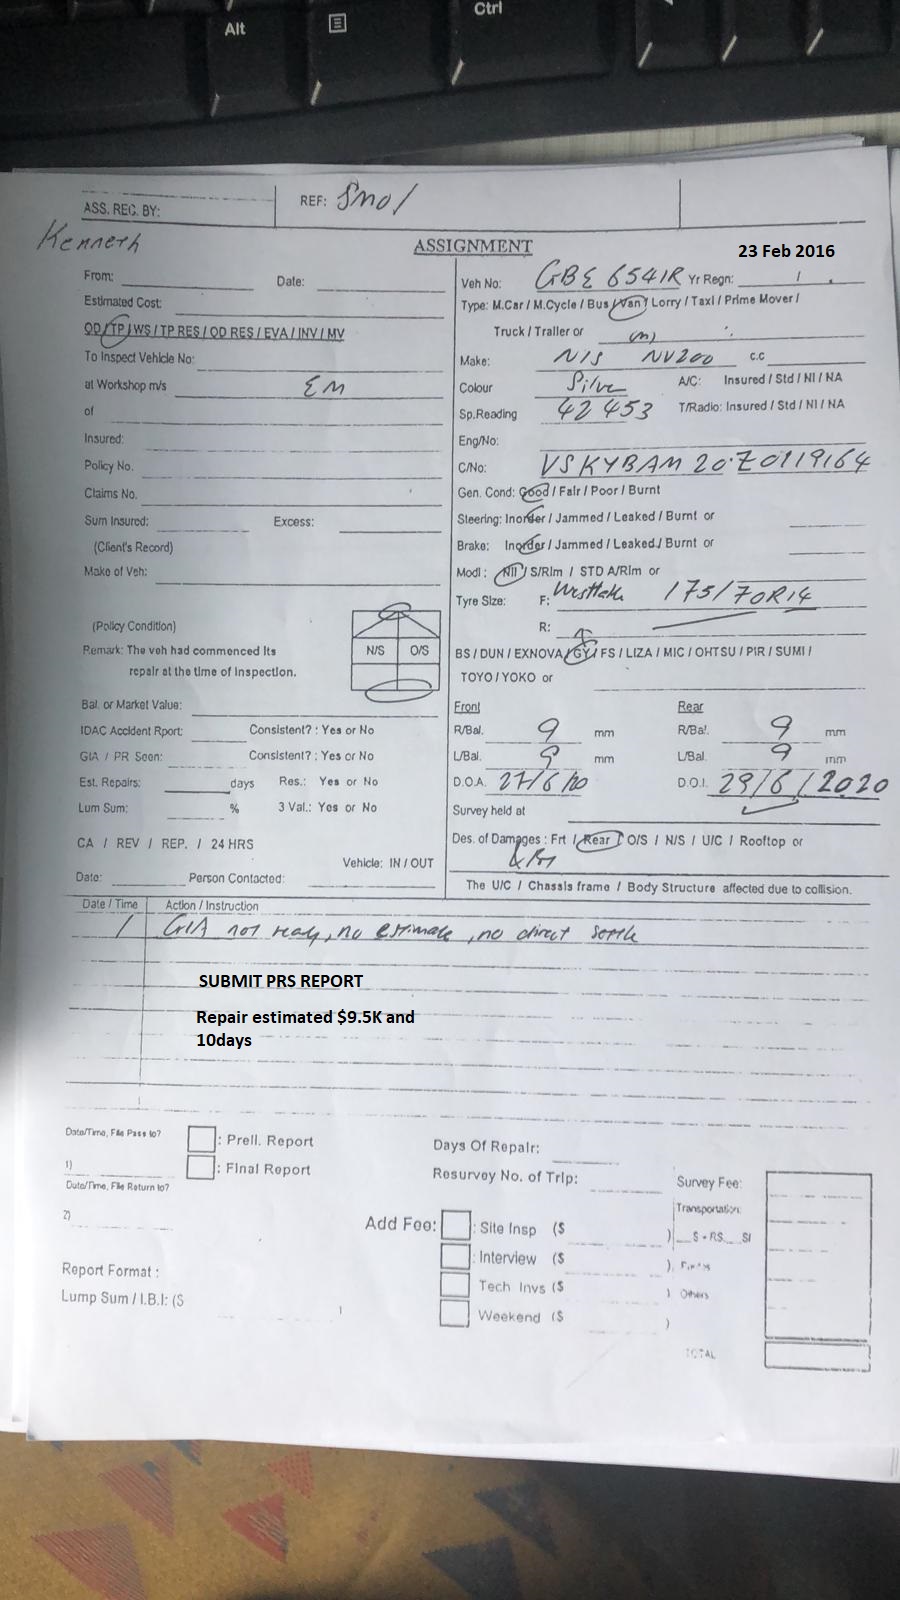 Alt
Ctrl
ASS. REC. BY:
REF:
Kenneth
ASSIGNMENT
23 Feb 2016
From: Date:
Veh No: GBE 6541R Yr Regn: /
Estimated Cost:
Type: M.Car / M.Cycle / Bus / Van / Lorry / Taxi / Prime Mover /
OD / TP / WS / TP RES / OD RES / EVA / INV / MV
Truck / Trailer or (m)
To Inspect Vehicle No:
Make: NIS NV200 c.c
at Workshop m/s EM
Colour Silve A/C: Insured / Std / NI / NA
of
Sp.Reading 42453 T/Radio: Insured / Std / NI / NA
Insured:
Eng/No:
Policy No.
C/No: VSKYBAM20·Z0119164
Claims No.
Gen. Cond: Good / Fair / Poor / Burnt
Sum Insured: Excess:
Steering: Inorder / Jammed / Leaked / Burnt or
(Client's Record)
Brake: Inorder / Jammed / Leaked / Burnt or
Make of Veh:
Modi : Nil / S/Rim / STD A/Rim or
Tyre Size: F: Westlake 175/70R14
R:
(Policy Condition)
N/S O/S
Remark: The veh had commenced its
repair at the time of inspection.
BS / DUN / EXNOVA / GY / FS / LIZA / MIC / OHTSU / PIR / SUMI /
TOYO / YOKO or
Bal. or Market Value:
Front Rear
IDAC Accident Rport: Consistent? : Yes or No
R/Bal. 9 mm R/Bal. 9 mm
GIA / PR Seen: Consistent? : Yes or No
L/Bal. 9 mm L/Bal. 9 mm
Est. Repairs: days Res.: Yes or No
D.O.A. 27/6/20 D.O.I. 29/6/2020
Lum Sum: % 3 Val.: Yes or No
Survey held at
CA / REV / REP. / 24 HRS
Des. of Damages : Frt / Rear / O/S / N/S / U/C / Rooftop or
Vehicle: IN / OUT
Date: Person Contacted:
The U/C / Chassis frame / Body Structure affected due to collision.
Date / Time Action / Instruction
/ GIA not ready, no estimate, no direct settle
SUBMIT PRS REPORT
Repair estimated $9.5K and
10days
Date/Time, File Pass to?
: Prell. Report
Days Of Repair:
1)
: Final Report
Resurvey No. of Trip:
Survey Fee:
Date/Time, File Return to?
Transportation:
2)
Add Fee: : Site Insp ($ )
S - RS SI
: Interview ($ )
Report Format :
: Tech Invs ($ ) Others
Lump Sum / I.B.I: ($ )
: Weekend ($ )
TOTAL